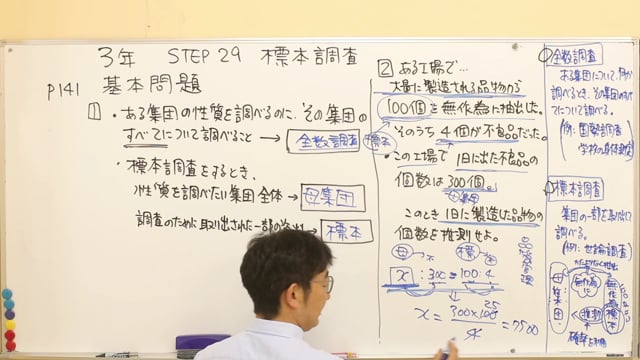 3年 STEP 29 標本調査
P141 基本問題
1 ・ある集団の性質を調べるのに、その集団の
すべてについて調べること → 全数調査
・標本調査をするとき、
性質を調べたい集団全体 → 母集団
調査のために取り出された一部の資料 → 標本
2 ある工場で…
大量に製造される品物から
100個を無作為に抽出した。
標本
そのうち4個が不良品だった。
・この工場で1日に出た不良品の
個数は300個。
母集団
このとき1日に製造した品物の
個数を推測せよ。
品質管理
母 標
x : 300 = 100 : 4
x = 300×100 / 4 = 7500
25
全数調査
ある集団について、何か
調べるとき、その集団のすべ
てについて調べる。
(例: 国勢調査
学校の身体測定)
標本調査
集団の一部を取り出して
調べる。
(例: 世論調査)
母集団
無作為
標本
推測
確率を利用